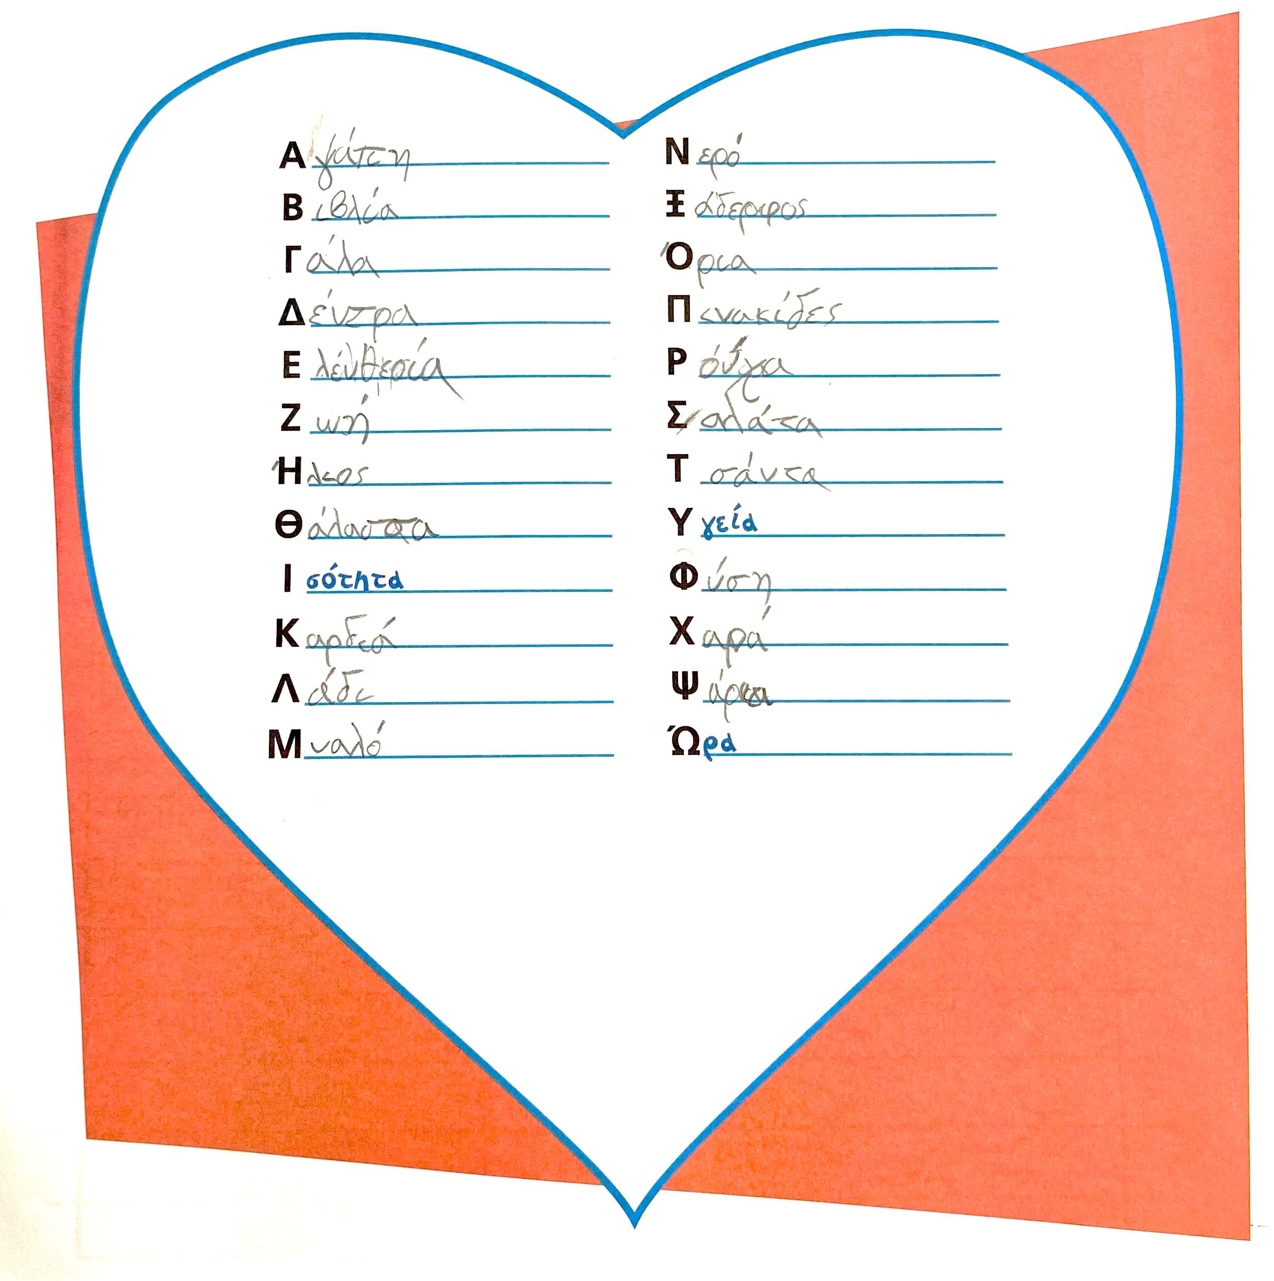 Αγάπη
Βιβλία
Γάλα
Δέντρα
Ελέυθερία
Ζωή
Ήλιος
Θάλασσα
Ισότητα
Καρδιά
Λάδι
Μυαλό
Νερό
Ξάδερφος
Όρια
Πινακίδες
Ρόύχα
Σαλάτα
Τσάντα
Υγεία
Φύση
Χαρά
Ψάρια
Ώρα